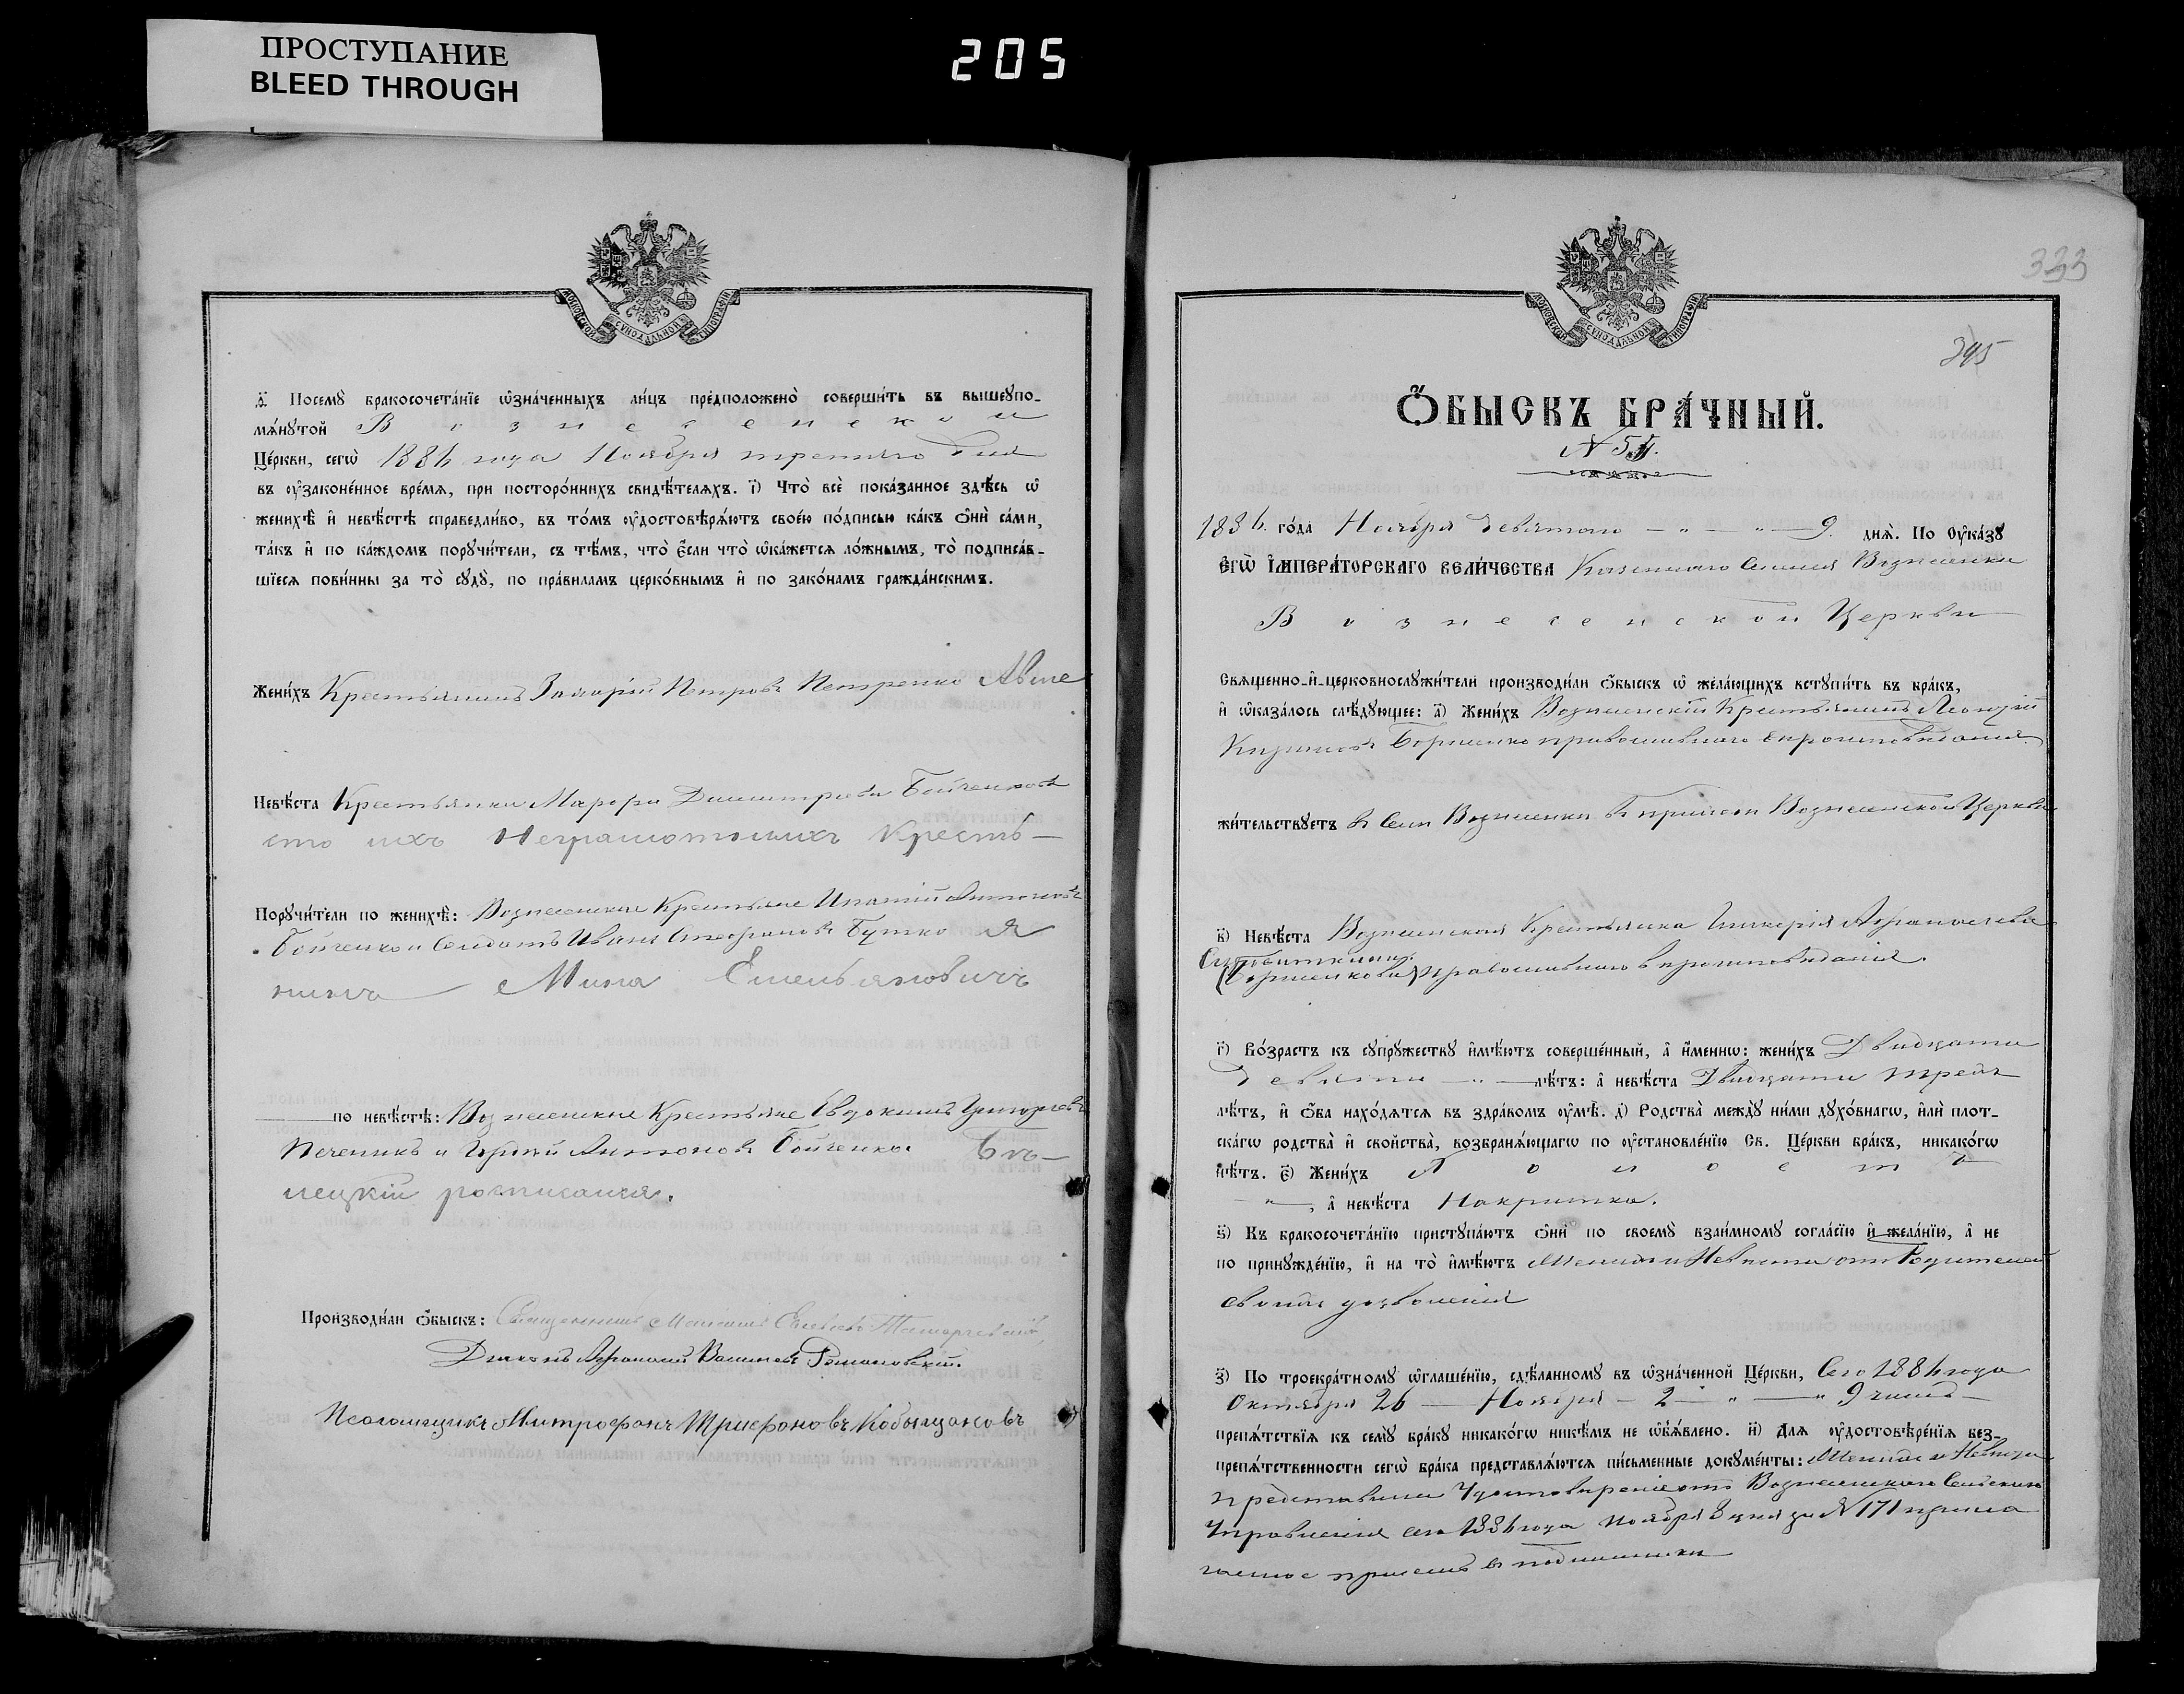 ПРОСТУПАНИЕ
BLEED THROUGH
205
МОСКОВСКОЙ СѴНОДАЛЬНОЙ ТИПОГРАФІИ
д҃) Посемꙋ̀ бракосочета́нїе ѡ҆зна́ченныхъ ли́цъ предположено̀ соверши́ть въ вышеꙋпо-
мѧ́нꙋтой Вознесенской
Це́ркви, сегѡ̀ 1886 года Ноября третьяго дня
въ ᲂу҆законе́нное вре́мѧ, при посторо́ннихъ свидѣ́телѧхъ. і҃) Что̀ всѐ пока́занное здѣ́сь ѡ҆
женихѣ̀ и҆ невѣ́стѣ справедли́во, въ то́мъ ᲂу҆достовѣрѧ́ютъ свое́ю по́дписью ка́къ ѻ҆нѝ са́ми,
та́къ и҆ по ка́ждомъ порꙋчи́тели, съ тѣ́мъ, что̀ є҆́сли что̀ ѡ҆ка́жетсѧ ло́жнымъ, то̀ подписа́в-
шїесѧ пови́нны за то̀ сꙋдꙋ̀, по пра́виламъ церко́внымъ и҆ по зако́намъ гражда́нскимъ.
Жени́хъ Крестьянинъ Захарій Петровъ Петренко Авме
Невѣ́ста Крестьянка Марфа Димитріева Бойченкова
сто ихъ Неграмотныхъ Кресть-
Порꙋчи́тели по женихѣ̀: Вознесенскіе Крестьяне Ипатій Антоновъ
Бойченко и Солдатъ Иванъ Стефановъ Бутко я
нинъ Мина Емельяновичъ
по невѣ́стѣ: Вознесенскіе Крестьяне Евдокимъ Григорьевъ
Печеникъ и Антоновъ Бойченко Бѣ-
лецкій росписался.
Произво́дили ѻ҆́быскъ: Священникъ
Дьяконъ Афанасій Васильевъ Романовскій.
Псаломщикъ Митрофанъ Трифоновъ Кобыщановъ
333
345
МОСКОВСКОЙ СѴНОДАЛЬНОЙ ТИПОГРАФІИ
Ѻ҆́БЫСКЪ БРА́ЧНЫЙ.
N
1886. го́да Ноября девятаго 9. днѧ̀. По Оу҆ка́зꙋ
Є҆ГѠ̀ И҆МПЕРА́ТОРСКАГО ВЕЛИ́ЧЕСТВА Казеннаго Селенія Вознесенки
Вознесенской Церкви
Свѧще́нно-и҆-церковнослꙋжи́тели производи́ли ѻ҆́быскъ ѡ҆ жела́ющихъ встꙋпи́ть въ бра́къ,
и҆ ѡ҆каза́лось слѣ́дꙋющее: а҃) Жени́хъ Вознесенскій Крестьянинъ Леонтій
Борисенко православнаго вѣроисповѣданія
жи́тельствꙋетъ въ Селѣ Вознесенки въ приходѣ Вознесенской Церкви
в҃) Невѣ́ста Вознесенская Крестьянка Гликерія Афанасіева
(Борисенкова) православнаго вѣроисповѣданія.
г҃) Во́зрастъ къ сꙋпрꙋ́жествꙋ и҆мѣ́ютъ соверше́нный, а҆ и҆́менно: жени́хъ Двадцати
девяти лѣ́тъ: а҆ невѣ́ста Двадцати трехъ
лѣ́тъ, и҆ ѻ҆́ба нахо́дѧтсѧ въ здра́вомъ ᲂу҆мѣ̀. д҃) Родства̀ междꙋ̀ ни́ми дꙋхо́внагѡ, и҆лѝ плот-
ска́гѡ родства̀ и҆ свойства̀, возбранѧ́ющагѡ по ᲂу҆становле́нїю Св. Це́ркви бра́къ, никако́гѡ
нѣ́тъ. є҃) Жени́хъ Холостъ
а҆ невѣ́ста Накритка.
ѕ҃) Къ бракосочета́нїю пристꙋпа́ютъ ѻ҆нѝ по своемꙋ̀ взаи́мномꙋ согла́сїю и҆ жела́нїю, а҆ не
по принꙋжде́нїю, и҆ на то̀ и҆мѣ́ютъ Женихъ и Невѣста отъ Родителей
своихъ дозволеніе
з҃) По троекра́тномꙋ ѡ҆глаше́нїю, сдѣ́ланномꙋ въ ѡ҆зна́ченной Це́ркви, Сего 1886 года
Октября 26 Ноября 2 9 чиселъ
препѧ́тствїѧ къ семꙋ̀ бра́кꙋ никако́гѡ никѣ́мъ не ѡ҆б̾ѧ́влено. и҃) Длѧ ᲂу҆достовѣре́нїѧ без-
препѧ́тственности сегѡ̀ бра́ка представлѧ́ютсѧ пи́сьменные докꙋме́нты: Женихъ и Невѣста
представили Удостовѣреніе отъ Вознесенскаго Сельскаго
Управленія сего 1886 года Ноября 8 дня за N 171
въ подлинникѣ